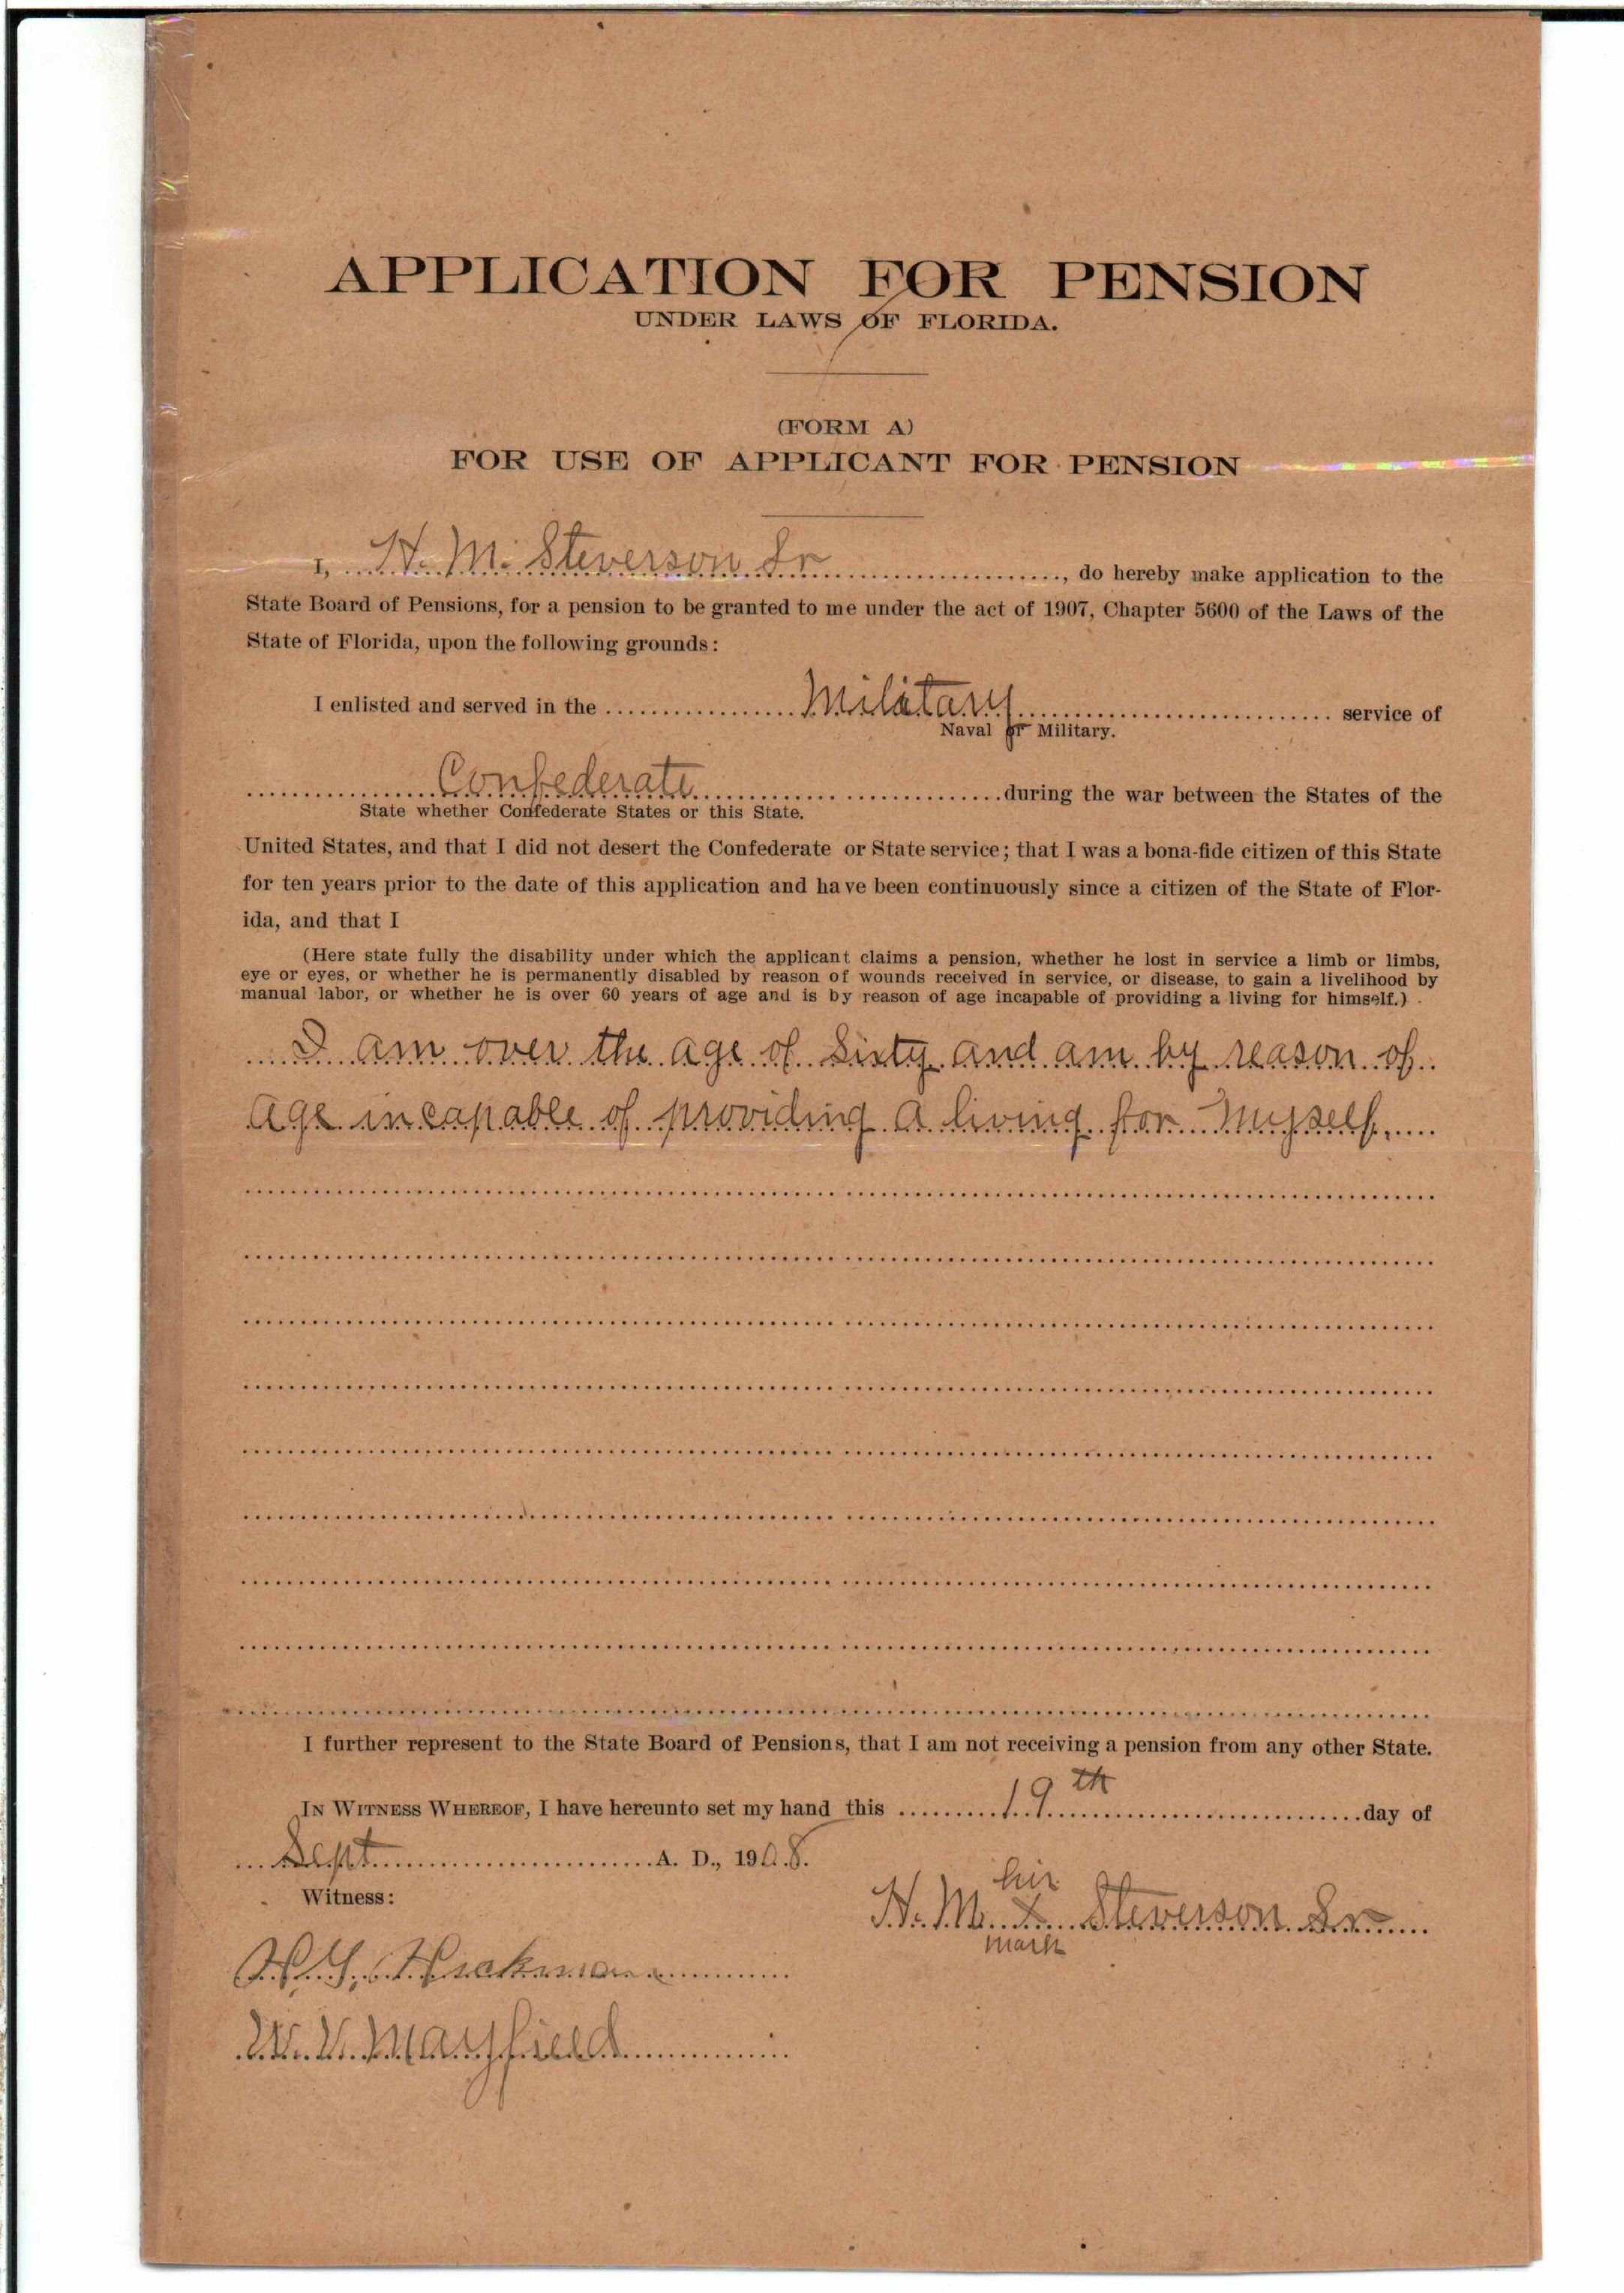 APPLICATION FOR PENSION
UNDER LAWS OF FLORIDA.
(FORM A)
FOR USE OF APPLICANT FOR PENSION
I, H. M. Steverson Sr, do hereby make application to the
State Board of Pensions, for a pension to be granted to me under the act of 1907, Chapter 5600 of the Laws of the
State of Florida, upon the following grounds:
I enlisted and served in the Military service of
Naval or Military.
Confederate during the war between the States of the
State whether Confederate States or this State.
United States, and that I did not desert the Confederate or State service; that I was a bona-fide citizen of this State
for ten years prior to the date of this application and have been continuously since a citizen of the State of Flor-
ida, and that I
(Here state fully the disability under which the applicant claims a pension, whether he lost in service a limb or limbs,
eye or eyes, or whether he is permanently disabled by reason of wounds received in service, or disease, to gain a livelihood by
manual labor, or whether he is over 60 years of age and is by reason of age incapable of providing a living for himself.)
I am over the age of Sixty and am by reason of
age incapable of providing a living for myself.
I further represent to the State Board of Pensions, that I am not receiving a pension from any other State.
IN WITNESS WHEREOF, I have hereunto set my hand this 19th day of
Sept A. D., 1908.
Witness:
his
H. M. X Steverson Sr
mark
W. V. Mayfield